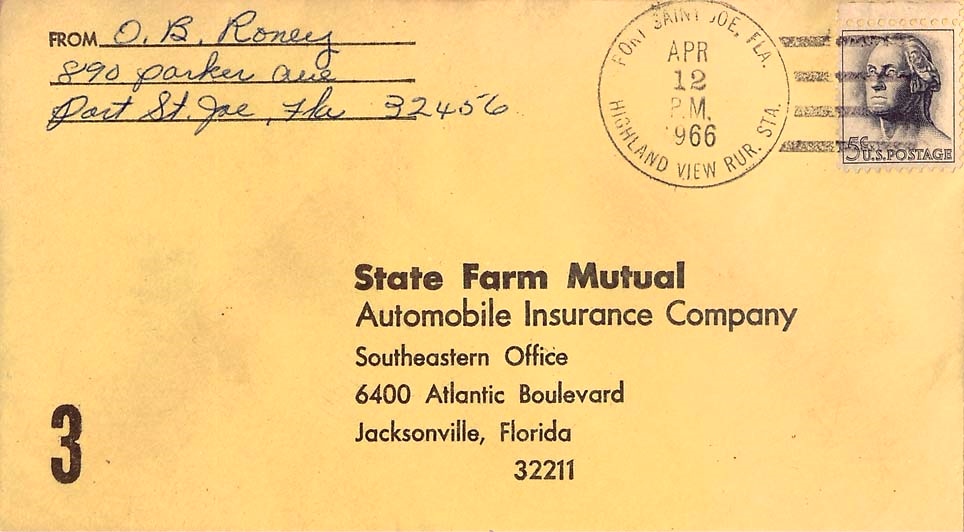 FROM O. B. Roney
890 parker ave
Port St. Joe, Fla 32456
PORT SAINT JOE, FLA.
APR
12
P.M.
1966
HIGHLAND VIEW RUR. STA.
5¢ U.S. POSTAGE
State Farm Mutual
Automobile Insurance Company
Southeastern Office
6400 Atlantic Boulevard
Jacksonville, Florida
32211
3